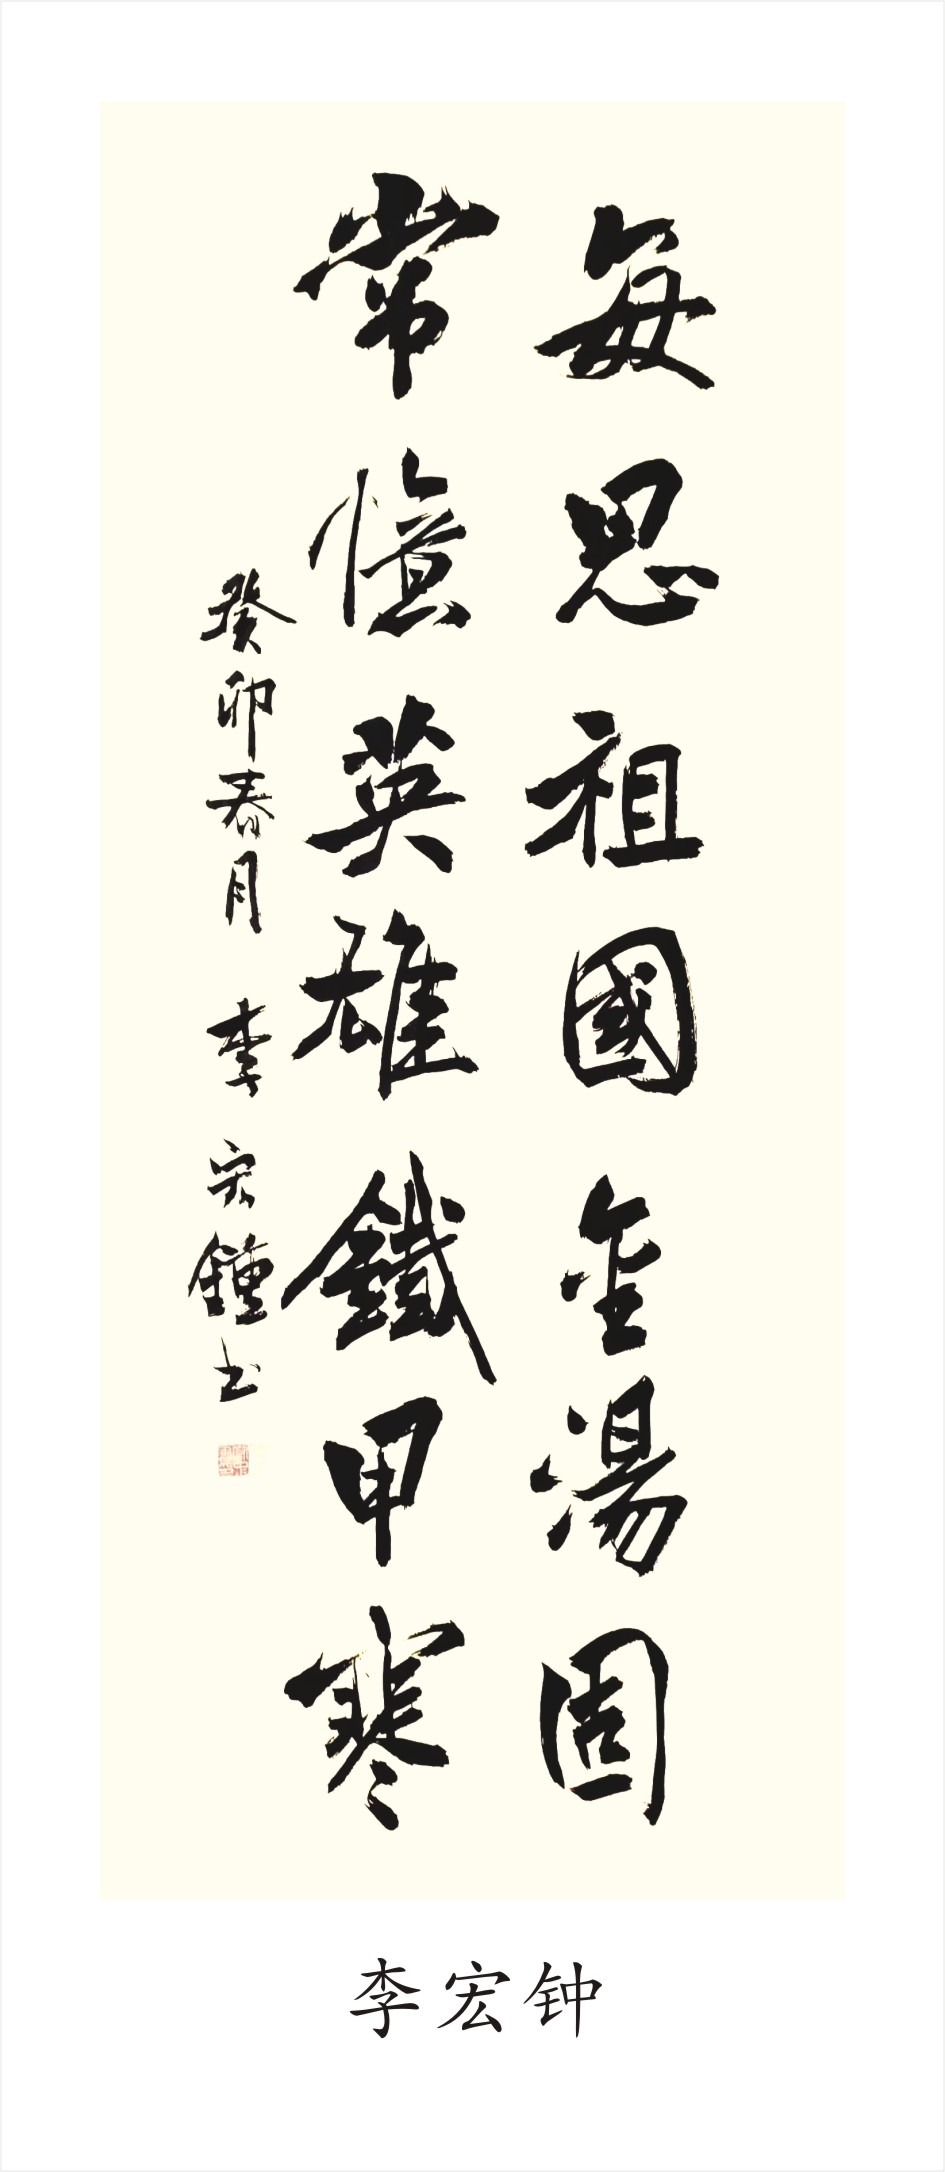 每思祖國金湯固
常憶英雄鐵甲寒
癸卯春月 李宏鍾书
李宏钟